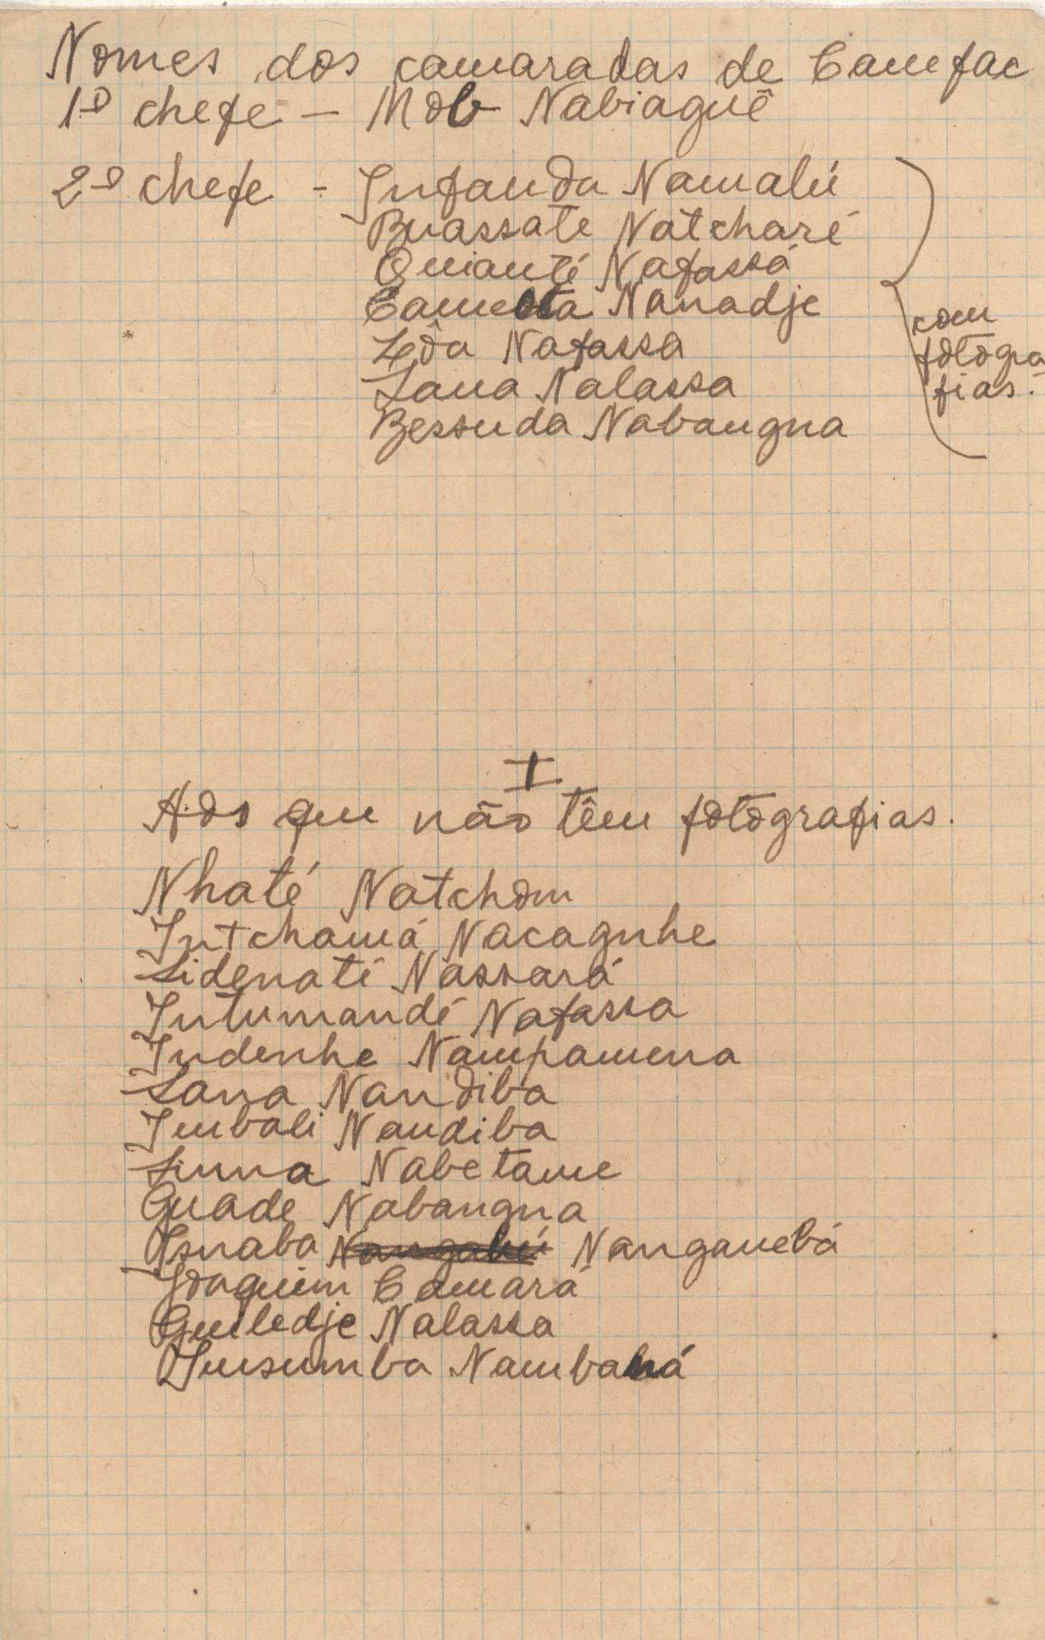 Nomes dos camaradas de Camfac
1º chefe – Mob Nabiaguê
2º chefe - Infanda Namalú
Buassate Natcharé
Quianté Nafassá
Nanadje
Lôa Nafassa
Lana Nalassa
Bessuda Nabangna
com
fotogra
fias.
I
A.os que não têm fotografias.
Nhaté Natchom
Intchamá Nacagnhe
Sidenati Nassará
Intumandé Nafassa
Indenhe Nampamena
Sana Nandiba
Imbali Nandiba
Nabetame
Guade Nabangna
Isnaba Nanganebá
Joaquim Camará
Guiledje Nalassa
Insumba